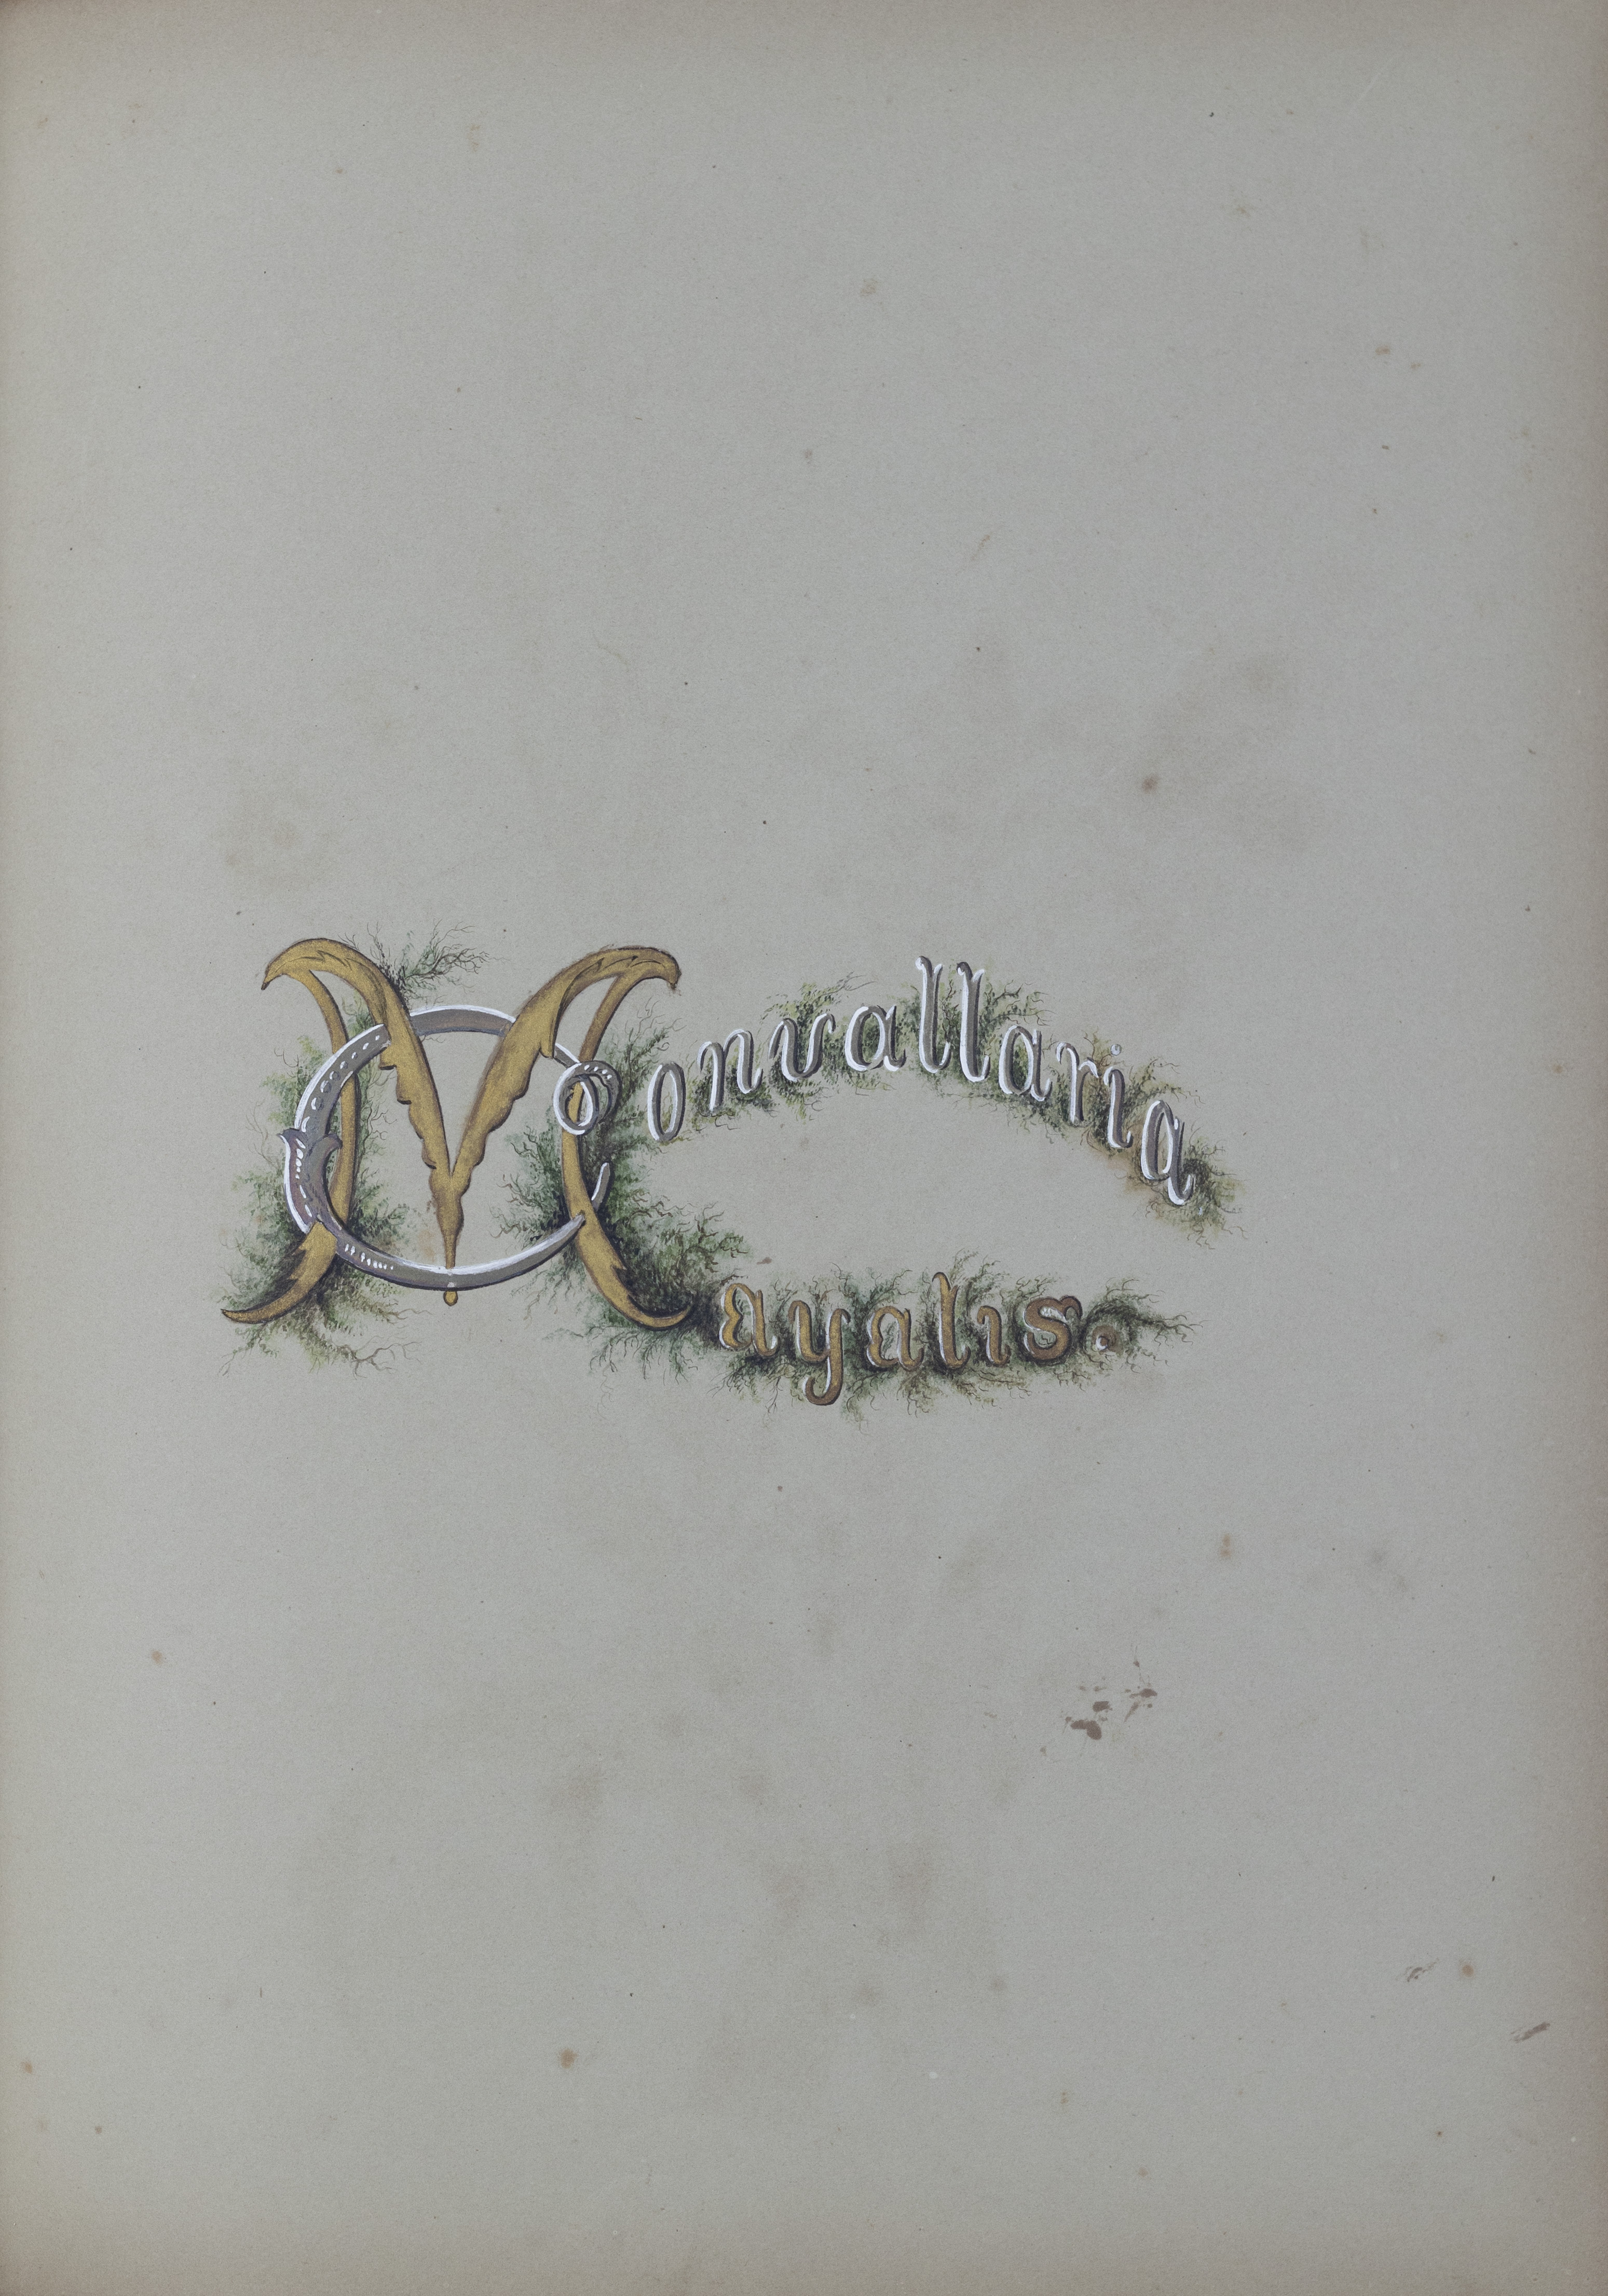 Convallaria
Mayalis.